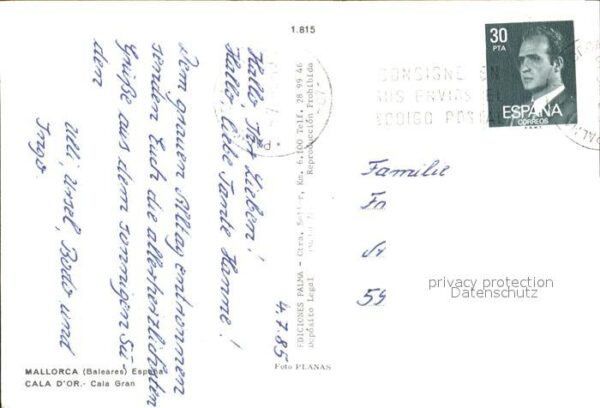 1.815
4.7.85
Hallo Ihr Lieben!
Hallo, liebe Tante Hanne!
Dem grauen Alltag entronnen
senden Euch die allerherzlichsten
Grüße aus dem sonnigen Sü-
den
Ulli, Ursel, Bodo und
Ingo
MALLORCA (Baleares) España
CALA D'OR.- Cala Gran
EDICIONES PALMA - Ctra. Soller, Km. 6,100 Telf. 28 99 46
Depósito Legal
Reproducción Prohibida
Foto PLANAS
30
PTA
ESPAÑA
CORREOS
CONSIGNE EN
SUS ENVIOS EL
CODIGO POSTAL
Familie
Fr
St
59
privacy protection
Datenschutz